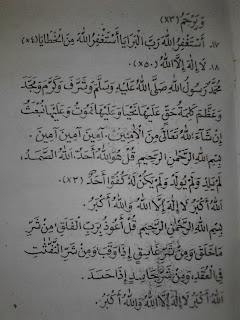 وَيَرْحَمُ (٣×)
١٧. أَسْتَغْفِرُ اللهَ رَبَّ الْبَرَايَا أَسْتَغْفِرُ اللهَ مِنَ الْخَطَايَا (٤×)
١٨. لَا إِلٰهَ إِلَّا اللهُ (٥٠×)
مُحَمَّدٌ رَسُولُ اللهِ صَلَّى اللهُ عَلَيْهِ وَسَلَّمَ وَشَرَّفَ وَكَرَّمَ وَمَجَّدَ
وَعَظَّمَ كَلِمَةُ حَقٍّ عَلَيْهَا نَحْيَا وَعَلَيْهَا نَمُوتُ وَعَلَيْهَا نُبْعَثُ
إِنْ شَاءَ اللهُ تَعَالَى مِنَ الْآمِنِينَ. آمِينَ آمِينَ آمِينَ.
بِسْمِ اللهِ الرَّحْمٰنِ الرَّحِيمِ قُلْ هُوَ اللهُ أَحَدٌ. اللهُ الصَّمَدُ.
لَمْ يَلِدْ وَلَمْ يُولَدْ وَلَمْ يَكُنْ لَهُ كُفُوًا أَحَدٌ (٣×)
اللهُ أَكْبَرُ لَا إِلٰهَ إِلَّا اللهُ وَاللهُ أَكْبَرُ
بِسْمِ اللهِ الرَّحْمٰنِ الرَّحِيمِ قُلْ أَعُوذُ بِرَبِّ الْفَلَقِ. مِنْ شَرِّ
مَا خَلَقَ وَمِنْ شَرِّ غَاسِقٍ إِذَا وَقَبَ وَمِنْ شَرِّ النَّفَّاثَاتِ
فِي الْعُقَدِ. وَمِنْ شَرِّ حَاسِدٍ إِذَا حَسَدَ.
اللهُ أَكْبَرُ لَا إِلٰهَ إِلَّا اللهُ وَاللهُ أَكْبَرُ.